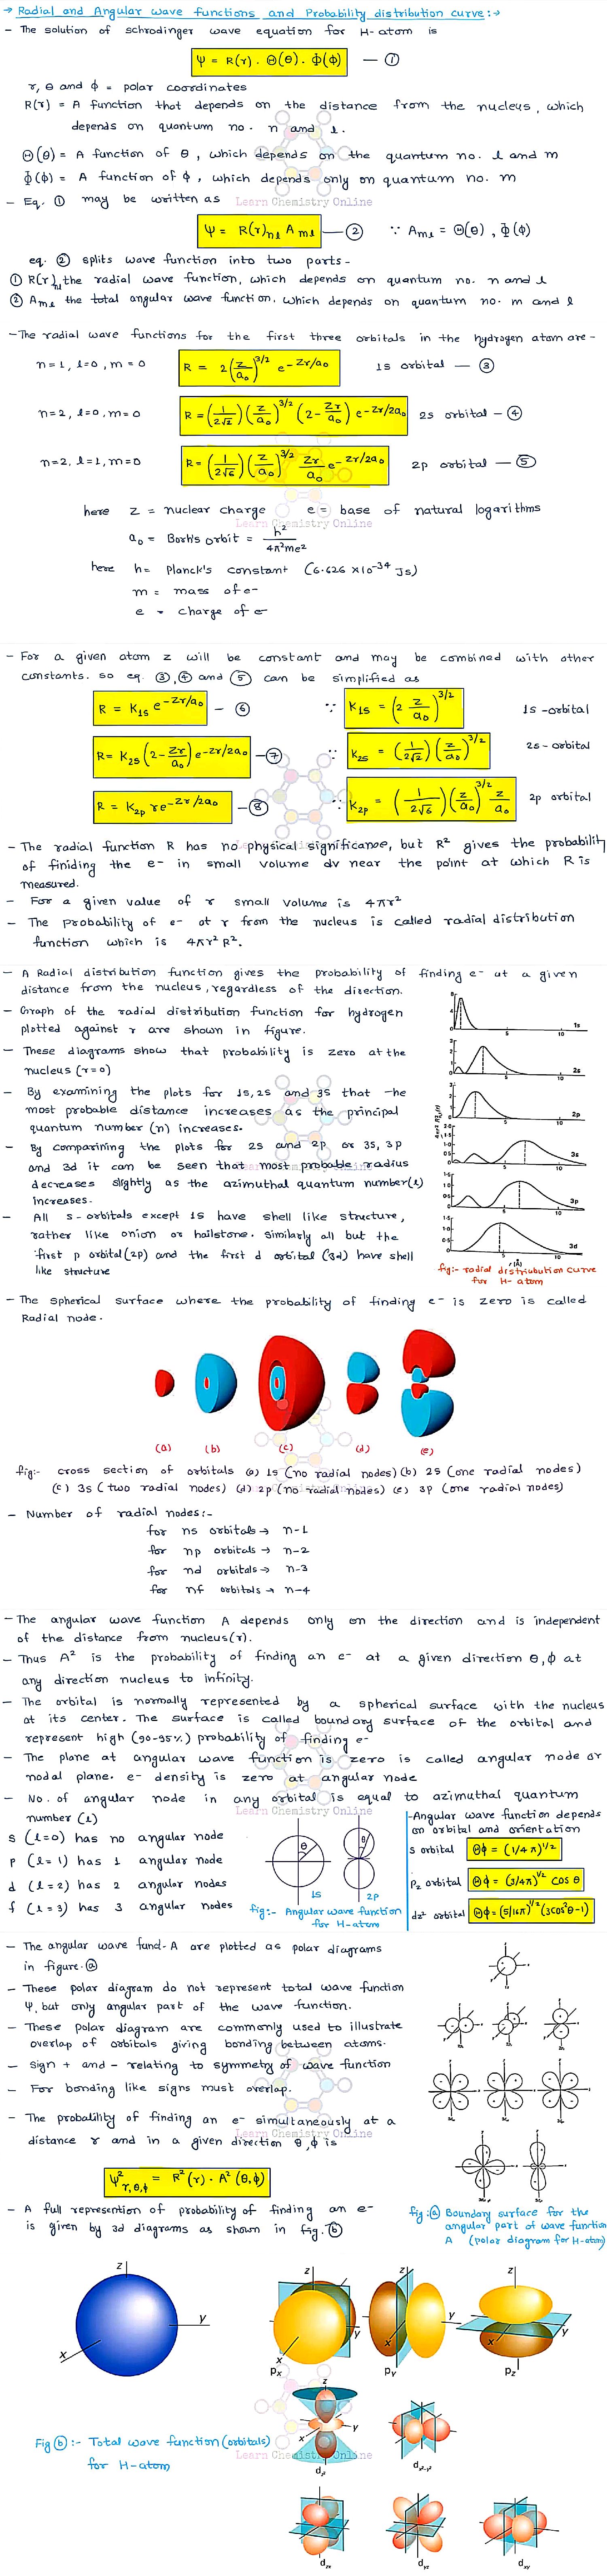 → Radial and Angular wave functions and Probability distribution curve:→
- The solution of schrodinger wave equation for H-atom is
Ψ = R(r) . Θ(θ) . Φ(ϕ) — ①
r, θ and ϕ = polar coordinates
R(r) = A function that depends on the distance from the nucleus, which
depends on quantum no. n and l.
Θ(θ) = A function of θ, which depends on the quantum no. l and m
Φ(ϕ) = A function of ϕ, which depends only on quantum no. m
- Eq. ① may be written as
Learn Chemistry Online
Ψ = R(r)nl Aml — ② ∵ Aml = Θ(θ), Φ(ϕ)
eq. ② splits wave function into two parts-
① R(r)nl the radial wave function, which depends on quantum no. n and l
② Aml the total angular wave function. which depends on quantum no. m and l
- The radial wave functions for the first three orbitals in the hydrogen atom are-
n=1, l=0, m=0 R = 2(Z/a₀)^3/2 e^-Zr/a₀ 1s orbital — ③
n=2, l=0, m=0 R = (1/2√2)(Z/a₀)^3/2 (2-Zr/a₀) e^-Zr/2a₀ 2s orbital - ④
n=2, l=1, m=0 R = (1/2√6)(Z/a₀)^3/2 Zr/a₀ e^-Zr/2a₀ 2p orbital — ⑤
here z = nuclear charge e = base of natural logarithms
Learn Chemistry Online
a₀ = Borh's orbit = h²/4π²me²
here h = Planck's constant (6.626 ×10^-34 Js)
m = mass of e-
e = charge of e-
- For a given atom z will be constant and may be combined with other
constants. so eq. ③,④ and ⑤ can be simplified as
R = K1s e^-Zr/a₀ — ⑥ ∵ K1s = (2 Z/a₀)^3/2 1s -orbital
R = K2s (2-Zr/a₀) e^-Zr/2a₀ — ⑦ ∵ K2s = (1/2√2)(Z/a₀)^3/2 2s- orbital
R = K2p r e^-Zr/2a₀ — ⑧ ∵ K2p = (1/2√6)(Z/a₀)^3/2 Z/a₀ 2p orbital
- The radial function R has no physical significance, but R² gives the probability
of finiding the e- in small volume dv near the point at which R is
measured.
- For a given value of r small volume is 4πr²
- The Probability of e- at r from the nucleus is called radial distribution
function which is 4πr² R².
- A Radial distribution function gives the probability of finding e- at a given
distance from the nucleus, regardless of the direction.
- Graph of the radial distribution function for hydrogen
plotted against r are shown in figure.
- These diagrams show that probability is zero at the
nucleus (r=0)
- By examining the plots for 1s, 2s and 3s that the
most probable distance increases as the principal
quantum number (n) increases.
- By comparining the plots for 2s and 2p or 3s, 3p
and 3d it can be seen that most probable radius
decreases slightly as the azimuthal quantum number(l)
increases.
- All s-orbitals except 1s have shell like structure,
rather like onion or hailstone. similarly all but the
first p orbital(2p) and the first d orbital (3d) have shell
like structure
1s
2s
2p
3s
3p
3d
r (Å)
fig:- radial distribution curve
for H- atom
- The spherical surface where the probability of finding e- is zero is called
Radial node.
(a) (b) (c) (d) (e)
fig:- cross section of orbitals (a) 1s (no radial nodes) (b) 2s (one radial nodes)
(c) 3s (two radial nodes) (d) 2p (no radial nodes) (e) 3p (one radial nodes)
- Number of radial nodes:-
for ns orbitals → n-1
for np orbitals → n-2
for nd orbitals → n-3
for nf orbitals → n-4
- The angular wave function A depends only on the direction and is independent
of the distance from nucleus(r).
- Thus A² is the probability of finding an e- at a given direction θ,ϕ at
any direction nucleus to infinity.
- The orbital is normally represented by a spherical surface with the nucleus
at its center. The surface is called boundary surface of the orbital and
represent high (90-95%) probability of finding e-
- The plane at angular wave function is zero is called angular node or
nodal plane. e- density is zero at angular node
- No. of angular node in any orbital is equal to azimuthal quantum
number (l)
Learn Chemistry Online
s (l=0) has no angular node
p (l=1) has 1 angular node
d (l=2) has 2 angular nodes
f (l=3) has 3 angular nodes
θ θ
1s 2p
fig:- Angular wave function
for H-atom
-Angular wave function depends
on orbital and orientation
s orbital ΘΦ = (1/4π)^1/2
Pz orbital ΘΦ = (3/4π)^1/2 cos θ
dz² orbital ΘΦ = (5/16π)^1/2 (3cos²θ-1)
- The angular wave fund- A are plotted as polar diagrams
in figure. ⓐ
- These polar diagram do not represent total wave function
Ψ, but only angular part of the wave function.
- These polar diagram are commonly used to illustrate
overlap of orbitals giving bonding between atoms.
- Sign + and - relating to symmetry of wave function
- For bonding like signs must overlap.
- The probability of finding an e- simultaneously at a
distance r and in a given direction θ,ϕ is
Learn Chemistry Online
Ψ²r,θ,ϕ = R²(r) . A²(θ,ϕ)
- A full represention of probability of finding an e-
is given by 3d diagrams as shown in fig. ⓑ
fig: ⓐ Boundary surface for the
angular part of wave function
A (polar diagram for H-atom)
z
y
x
z
y
x
Px
z
y
x
Py
z
y
x
Pz
Fig ⓑ :- Total wave function (orbitals)
for H-atom
Learn Chemistry Online
z
y
x
dz²
dx²-y²
dyz
dxy